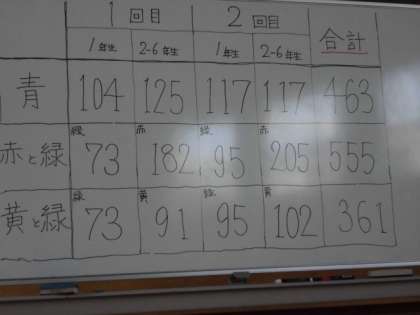 1回目 2回目 合計
1年生 2-6年生 1年生 2-6年生
青 104 125 117 117 463
緑 赤 緑 赤
赤と緑 73 182 95 205 555
緑 黄 緑 黄
黄と緑 73 91 95 102 361